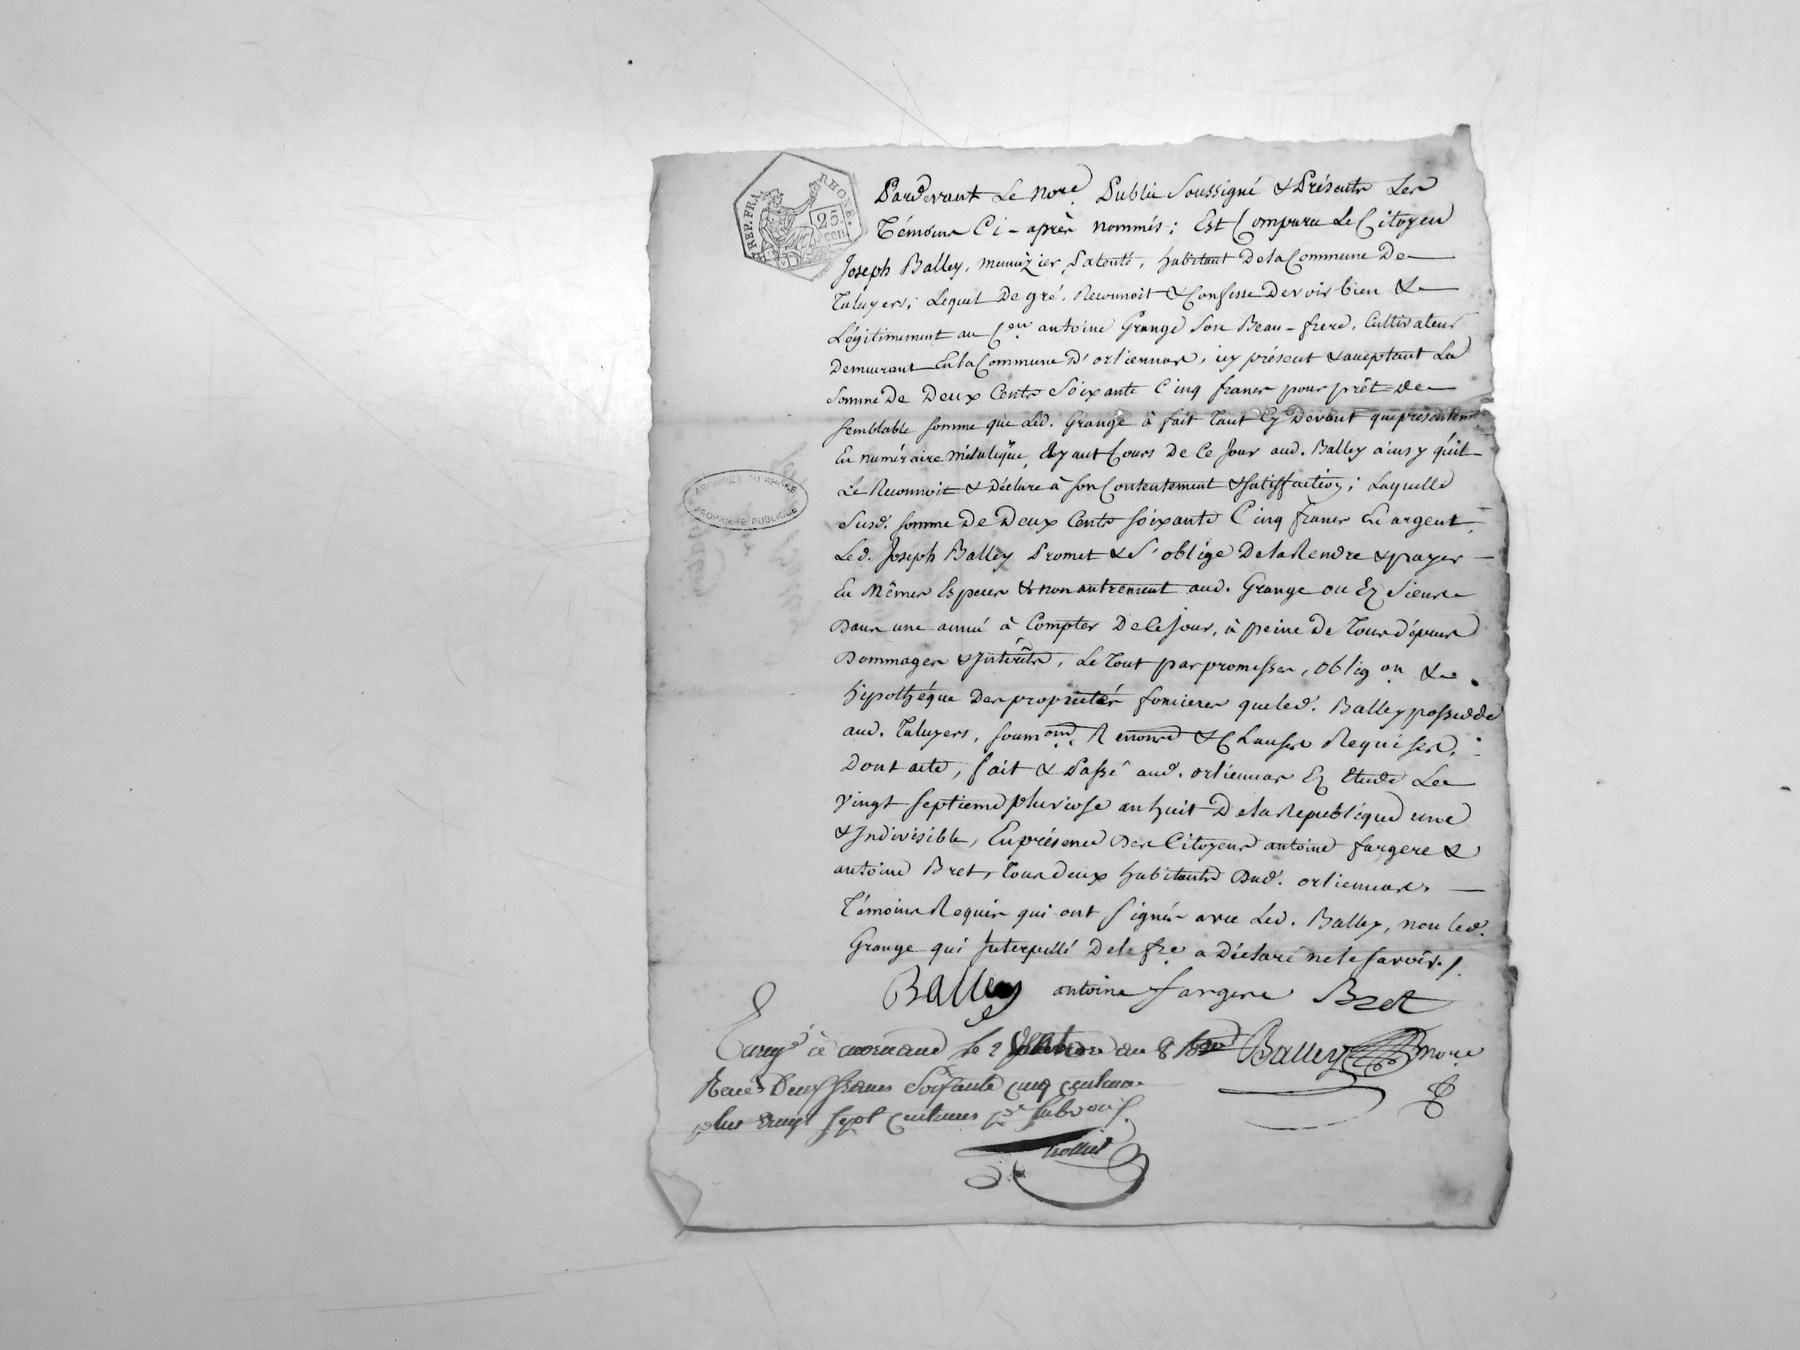 REP. FRA. RHONE.
25 cen
Pard'evant Le nore. Public soussigné & Présents Les
Témoins Ci-après nommés; Est Comparu Le Citoyen
Joseph Balley, menuizier Patenté, habitant de la Commune De
Taluyers; Lequel De gré, Reconnoit & Confesse Devoir bien &
Légitimement au Cen. antoine Grange Son Beau-frere, Cultivateur
Demeurant En la Commune D'orliennas, icy présent & acceptant La
Somme De Deux Cents Soixante Cinq francs pour prêt de
semblable somme que Led. Grange à fait tant Cy Devant que présentemt.
En numéraire métalique, Ayant Cours De Ce Jour aud. Balley ainsy qu'il
Le Reconnoit & Déclare à son Contentement & satisfaction; Laquelle
Susd. somme De Deux Cents soixante Cinq francs En argent,
Led. Joseph Balley Promet & S'oblige De la Rendre & payer
En Mêmes Especes & non autrement aud. Grange ou Ez Siens
Dans une année à Compter De Ce Jour, à peine De Tous dépens
Dommages & Intérêts, Le Tout par promesses, Obligon. &
hipothéque Des propriétés foncieres que led. Balley possedde
aud. Taluyers, soumons. Renonc. & Clauses Requises.
Dont acte, fait & Passé aud. orliennas Ez Etude Le
vingt septieme pluviose an huit De la Republique une
& Indivisible, En présence Des Citoyens antoine fargere &
antoine Bret, Tous deux habitants Dud. orliennas,
Témoins Requis qui ont signés avec Led. Balley, non led.
Grange qui Interpellé De le fre a Déclaré ne le savoir./.
Balley antoine fargere Bret
Enregé à mornand le 2 ventose an 8 Balley nore
Recu Deux francs Soixante cinq centimes
plus vingt sept centimes pr. subvon.
ARCHIVES DU RHÔNE
PROPRIÉTÉ PUBLIQUE